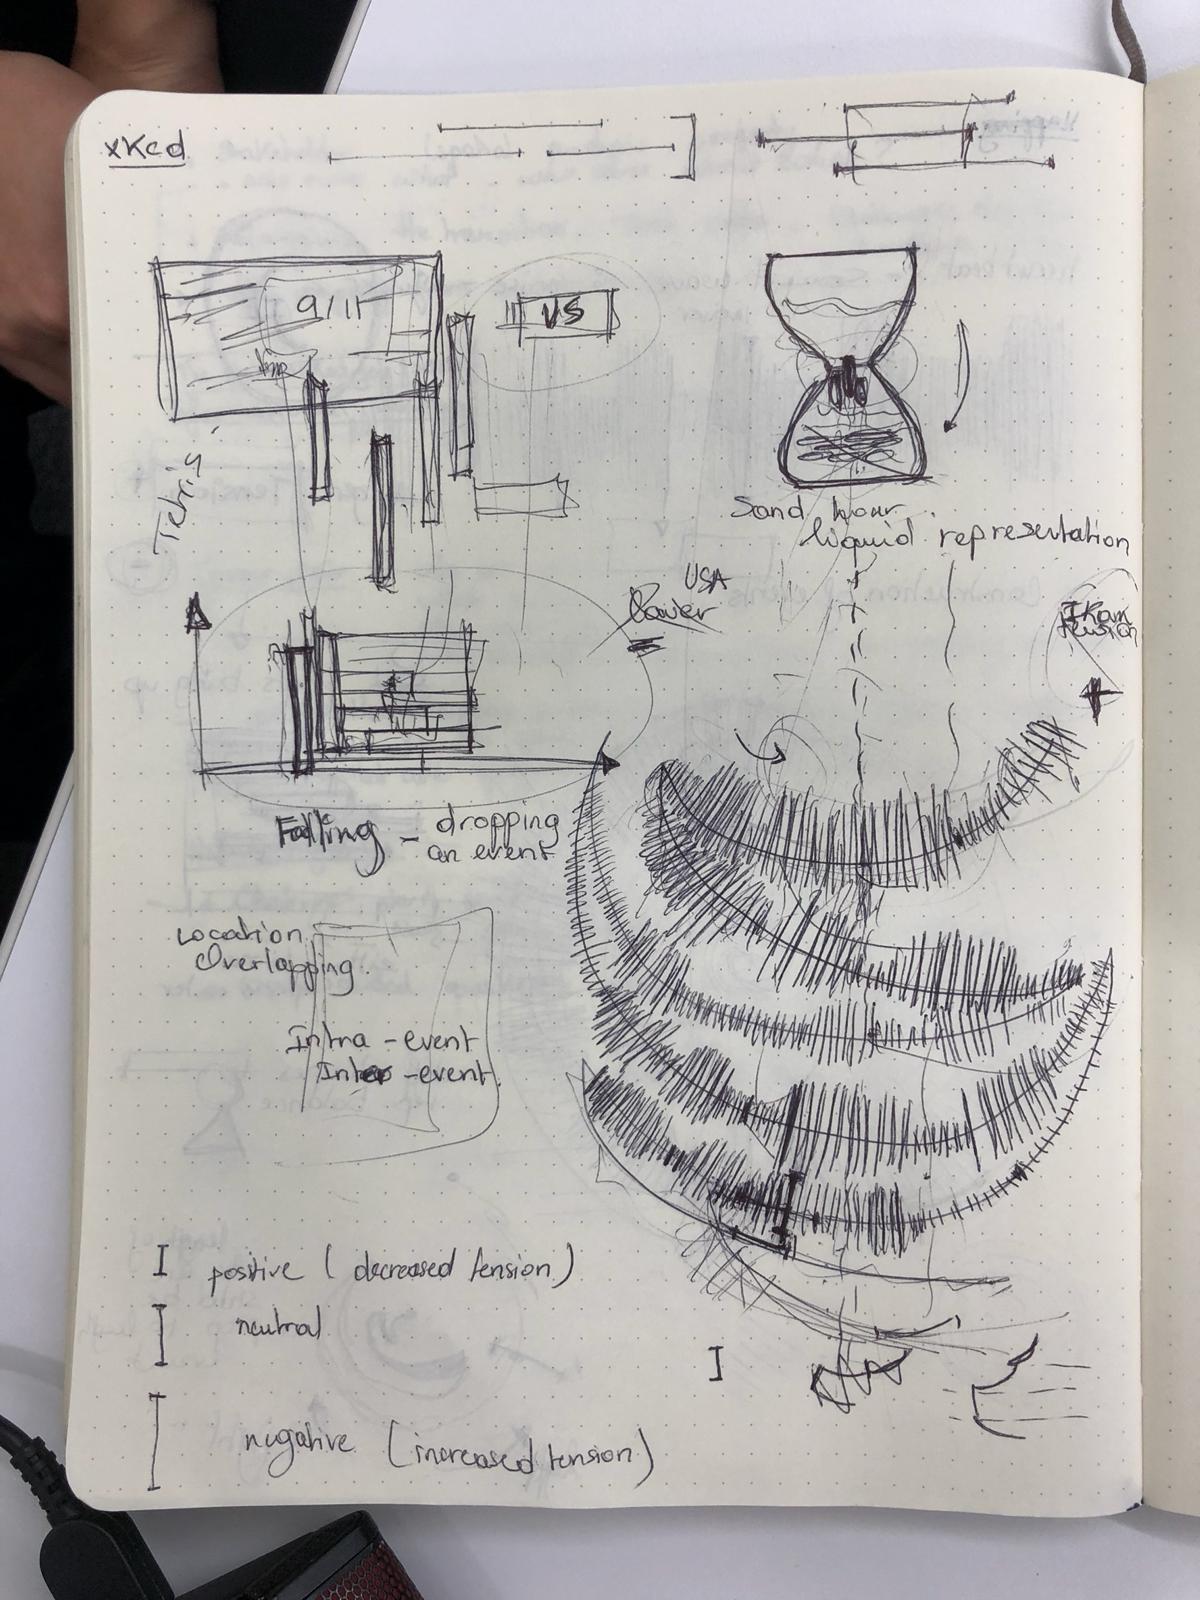 xKcd
9/11
VS
Tetris
Sand hour
liquid representation
USA
tension
Falling - dropping
an event
Location
Overlapping
Intra - event
Inter - event
I positive ( decreased tension )
neutral
negative (increased tension)